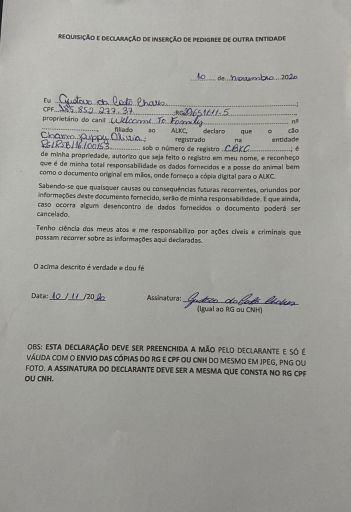 REQUISIÇÃO E DECLARAÇÃO DE INSERÇÃO DE PEDIGREE DE OUTRA ENTIDADE
10 de novembro 2020
Eu Gustavo da
CPF RG
proprietário do canil Welcome To Family nº
filiado ao ALKC, declaro que o cão
Puppy registrado na entidade
sob o número de registro CBKC ; é
de minha propriedade, autorizo que seja feito o registro em meu nome, e reconheço
que é de minha total responsabilidade os dados fornecidos e a posse do animal bem
como o documento original em mãos, onde forneço a cópia digital para o ALKC.
Sabendo-se que quaisquer causas ou consequências futuras recorrentes, oriundos por
informações deste documento fornecido, serão de minha responsabilidade. E que ainda,
caso ocorra algum desencontro de dados fornecidos o documento poderá ser
cancelado.
Tenho ciência dos meus atos e me responsabilizo por ações cíveis e criminais que
possam recorrer sobre as informações aqui declaradas.
O acima descrito é verdade e dou fé
Data: 10 / 11 /2020 Assinatura:
(Igual ao RG ou CNH)
OBS: ESTA DECLARAÇÃO DEVE SER PREENCHIDA A MÃO PELO DECLARANTE E SÓ É
VÁLIDA COM O ENVIO DAS CÓPIAS DO RG E CPF OU CNH DO MESMO EM JPEG, PNG OU
FOTO. A ASSINATURA DO DECLARANTE DEVE SER A MESMA QUE CONSTA NO RG CPF
OU CNH.